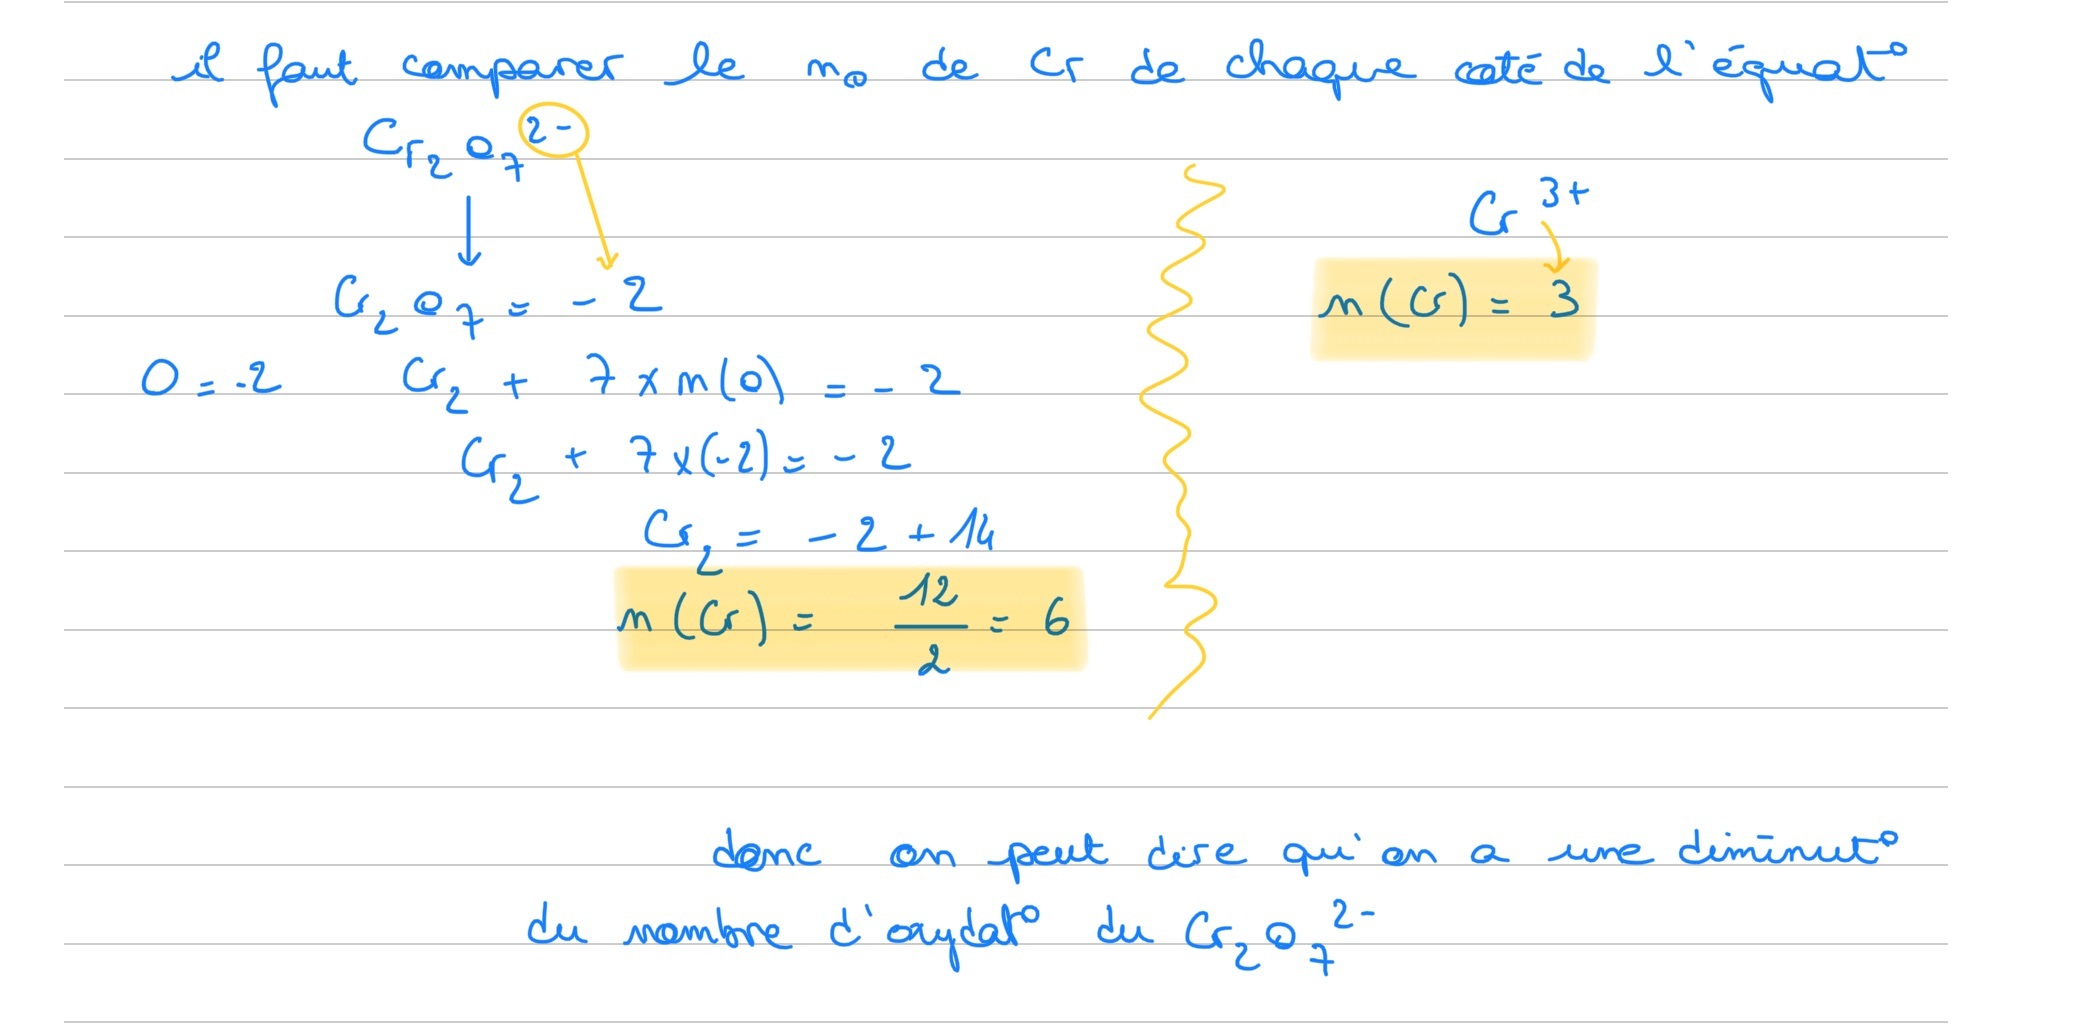 il faut comparer le no de Cr de chaque coté de l'équat°
Cr₂O₇²⁻
Cr³⁺
Cr₂O₇ = -2
n(Cr) = 3
O = -2 Cr₂ + 7 x n(O) = -2
Cr₂ + 7 x (-2) = -2
Cr₂ = -2 + 14
n(Cr) = 12/2 = 6
donc on peut dire qu'on a une diminut°
du nombre d'oxydat° du Cr₂O₇²⁻